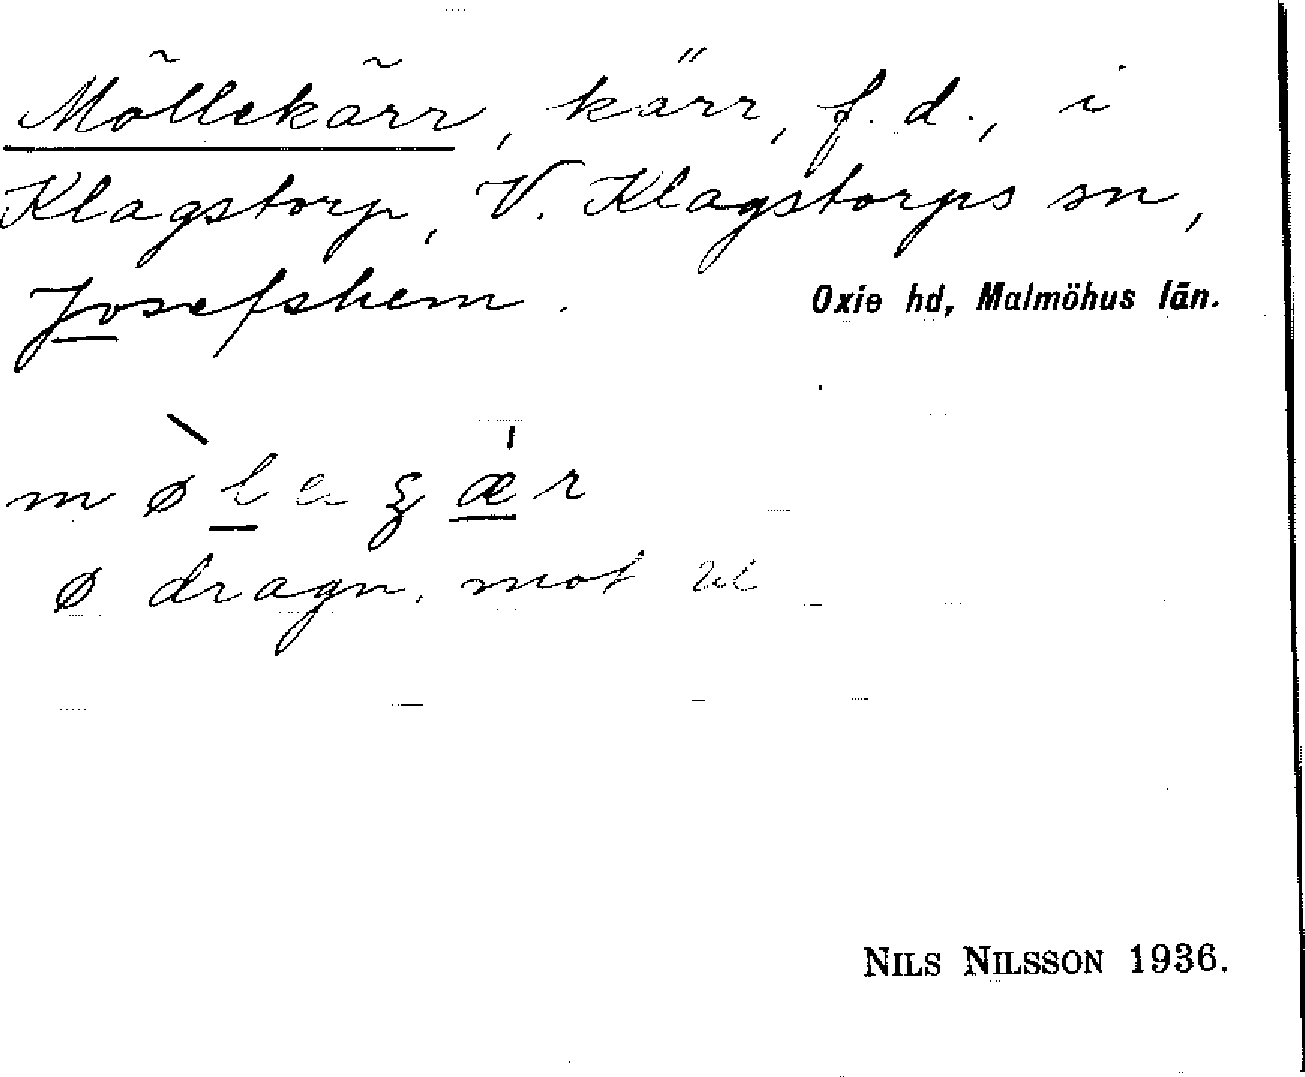 Möllekärr, kärr, f.d., i
Klagstorp, V. Klagstorps sn,
Josefshem. Oxie hd, Malmöhus län.
ø dragn. mot
NILS NILSSON 1936.